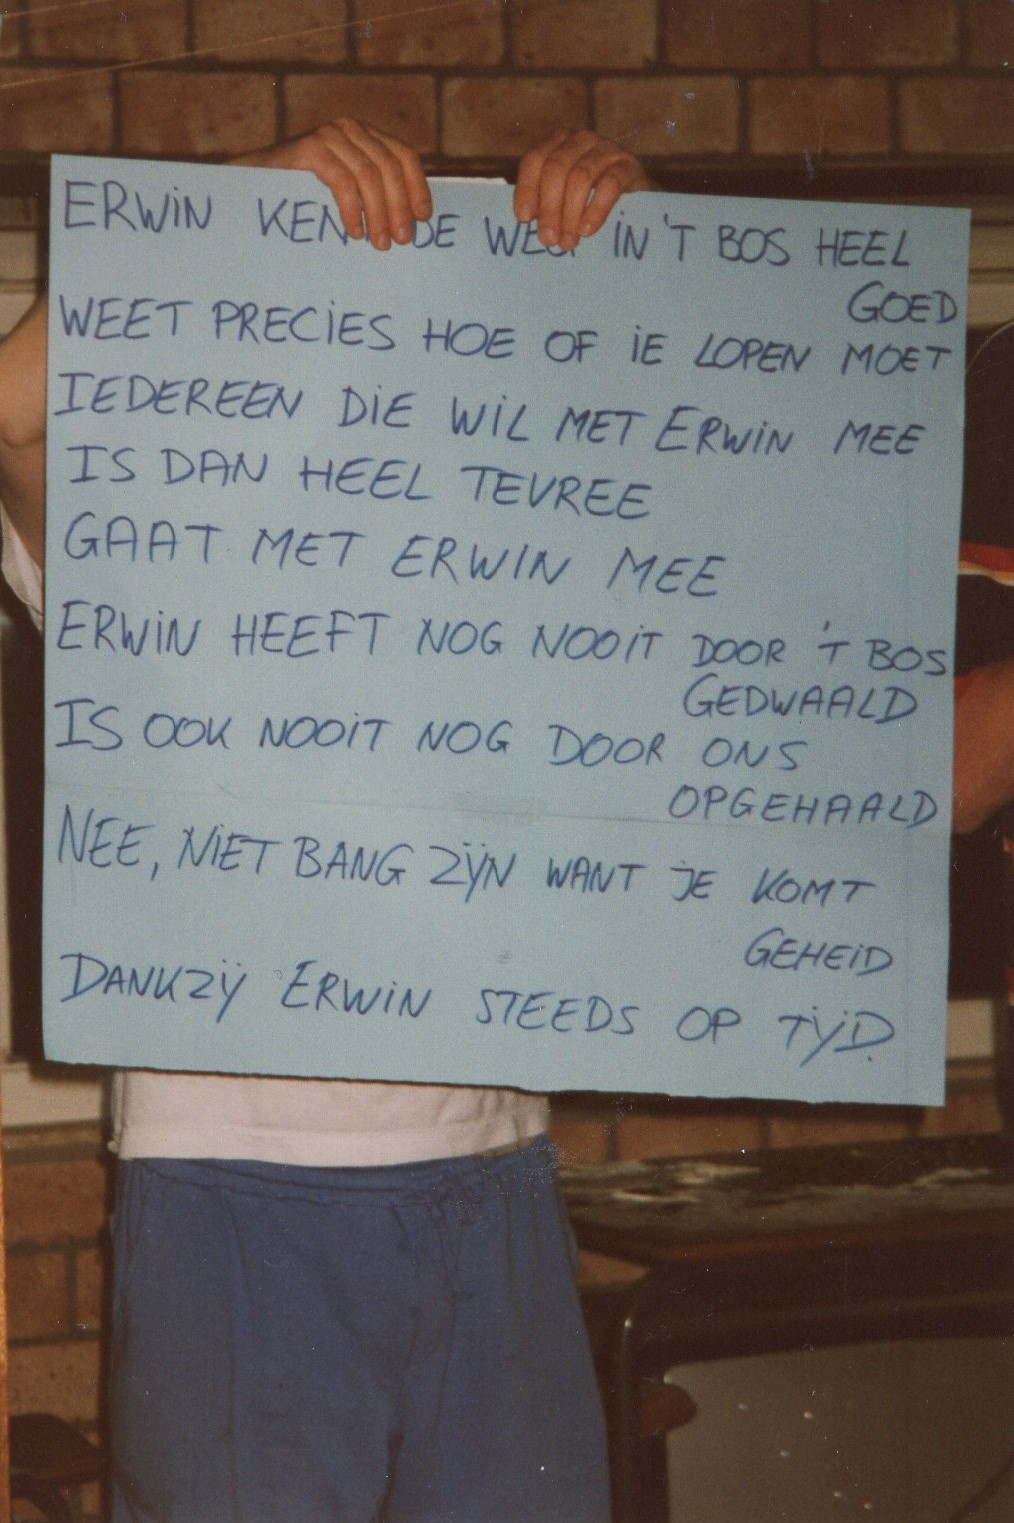 ERWIN KENT DE WEG IN 'T BOS HEEL
GOED
WEET PRECIES HOE OF IE LOPEN MOET
IEDEREEN DIE WIL MET ERWIN MEE
IS DAN HEEL TEVREE
GAAT MET ERWIN MEE
ERWIN HEEFT NOG NOOIT DOOR 'T BOS
GEDWAALD
IS OOK NOOIT NOG DOOR ONS
OPGEHAALD
NEE, NIET BANG ZIJN WANT JE KOMT
GEHEID
DANKZIJ ERWIN STEEDS OP TIJD.